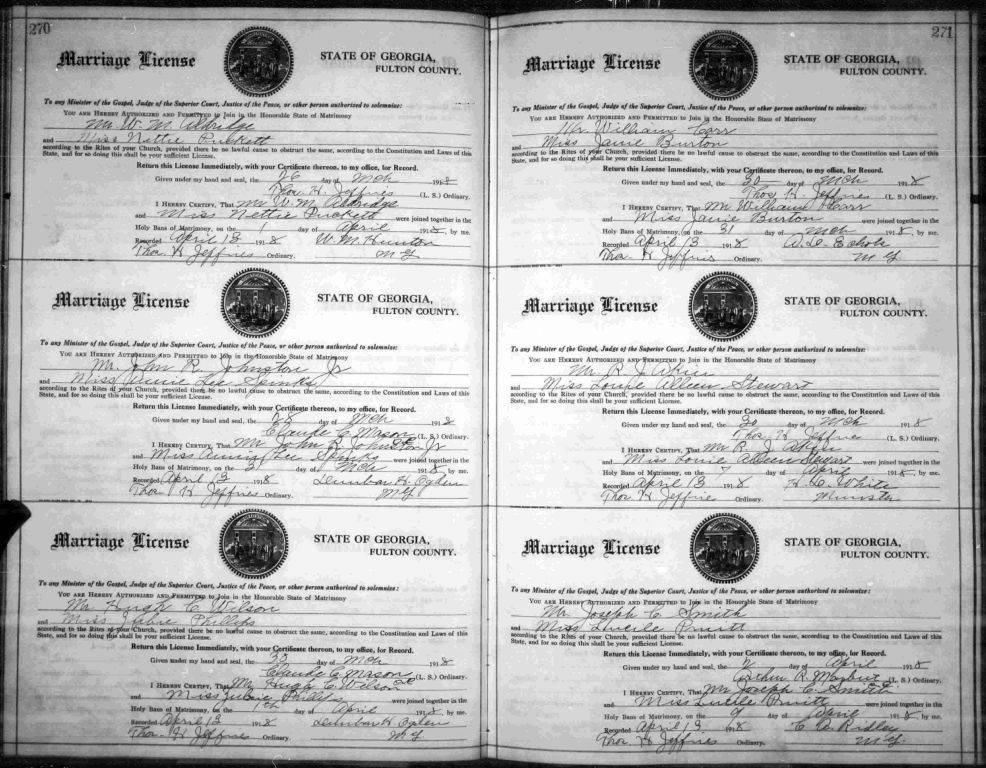 270
Marriage License
STATE OF GEORGIA,
FULTON COUNTY.
To any Minister of the Gospel, Judge of the Superior Court, Justice of the Peace, or other person authorized to solemnize:
YOU ARE HEREBY AUTHORIZED AND PERMITTED to Join in the Honorable State of Matrimony
Mr. W. M. Aldridge
and Miss Nettie Puckett
according to the Rites of your Church, provided there be no lawful cause to obstruct the same, according to the Constitution and Laws of this
State, and for so doing this shall be your sufficient License.
Return this License Immediately, with your Certificate thereon, to my office, for Record.
Given under my hand and seal, the 26 day of Mch 1918
Thos. H. Jeffries (L. S.) Ordinary.
I HEREBY CERTIFY, That Mr W. M. Aldridge
and Miss Nettie Puckett were joined together in the
Holy Bans of Matrimony, on the 1 day of April 1918, by me.
Recorded April 13 1918 W. M. Hunton
Thos. H Jeffries Ordinary. M G
Marriage License
STATE OF GEORGIA,
FULTON COUNTY.
To any Minister of the Gospel, Judge of the Superior Court, Justice of the Peace, or other person authorized to solemnize:
YOU ARE HEREBY AUTHORIZED AND PERMITTED to Join in the Honorable State of Matrimony
Mr. John R. Johnston Jr
and Miss Annie Lee Spinks
according to the Rites of your Church, provided there be no lawful cause to obstruct the same, according to the Constitution and Laws of this
State, and for so doing this shall be your sufficient License.
Return this License Immediately, with your Certificate thereon, to my office, for Record.
Given under my hand and seal, the 28 day of Mch 1918
Claude C. Mason (L. S.) Ordinary.
I HEREBY CERTIFY, That Mr John R Johnston Jr
and Miss Annie Lee Spinks were joined together in the
Holy Bans of Matrimony, on the 31 day of Mch 1918, by me.
Recorded April 13 1918 Dunbar H. Ogden
Thos H Jeffries Ordinary. M G
Marriage License
STATE OF GEORGIA,
FULTON COUNTY.
To any Minister of the Gospel, Judge of the Superior Court, Justice of the Peace, or other person authorized to solemnize:
YOU ARE HEREBY AUTHORIZED AND PERMITTED to Join in the Honorable State of Matrimony
Mr Hugh C Wilson
and Miss Jubie Phillips
according to the Rites of your Church, provided there be no lawful cause to obstruct the same, according to the Constitution and Laws of this
State, and for so doing this shall be your sufficient License.
Return this License Immediately, with your Certificate thereon, to my office, for Record.
Given under my hand and seal, the 30 day of Mch 1918
Claude C Mason (L. S.) Ordinary.
I HEREBY CERTIFY, That Mr Hugh C Wilson
and Miss Jubie were joined together in the
Holy Bans of Matrimony, on the day of April 1918, by me.
Recorded April 13 1918 Dunbar H Ogden
Thos. H Jeffries Ordinary. M G
271
Marriage License
STATE OF GEORGIA,
FULTON COUNTY.
To any Minister of the Gospel, Judge of the Superior Court, Justice of the Peace, or other person authorized to solemnize:
YOU ARE HEREBY AUTHORIZED AND PERMITTED to Join in the Honorable State of Matrimony
Mr. William Carr
and Miss Janie Burton
according to the Rites of your Church, provided there be no lawful cause to obstruct the same, according to the Constitution and Laws of this
State, and for so doing this shall be your sufficient License.
Return this License Immediately, with your Certificate thereon, to my office, for Record.
Given under my hand and seal, the 30 day of Mch 1918
Thos H Jeffries (L. S.) Ordinary.
I HEREBY CERTIFY, That Mr William Carr
and Miss Janie Burton were joined together in the
Holy Bans of Matrimony, on the 31 day of Mch 1918, by me.
Recorded April 13 1918 Echols
Thos. H Jeffries Ordinary. M G
Marriage License
STATE OF GEORGIA,
FULTON COUNTY.
To any Minister of the Gospel, Judge of the Superior Court, Justice of the Peace, or other person authorized to solemnize:
YOU ARE HEREBY AUTHORIZED AND PERMITTED to Join in the Honorable State of Matrimony
Mr R. J. Akin
and Miss Louie Alleen Stewart
according to the Rites of your Church, provided there be no lawful cause to obstruct the same, according to the Constitution and Laws of this
State, and for so doing this shall be your sufficient License.
Return this License Immediately, with your Certificate thereon, to my office, for Record.
Given under my hand and seal, the 30 day of Mch 1918
Thos. H. Jeffries (L. S.) Ordinary.
I HEREBY CERTIFY, That Mr R. J. Akin
and Miss Louie Alleen Stewart were joined together in the
Holy Bans of Matrimony, on the 7 day of April 1918, by me.
Recorded April 13 1918 H. C. White
Thos H Jeffries Ordinary. Minister
Marriage License
STATE OF GEORGIA,
FULTON COUNTY.
To any Minister of the Gospel, Judge of the Superior Court, Justice of the Peace, or other person authorized to solemnize:
YOU ARE HEREBY AUTHORIZED AND PERMITTED to Join in the Honorable State of Matrimony
Mr. Joseph C. Smith
and Miss Lucile Pruitt
according to the Rites of your Church, provided there be no lawful cause to obstruct the same, according to the Constitution and Laws of this
State, and for so doing this shall be your sufficient License.
Return this License Immediately, with your Certificate thereon, to my office, for Record.
Given under my hand and seal, the 2 day of April 1918
R. (L. S.) Ordinary.
I HEREBY CERTIFY, That Mr Joseph C. Smith
and Miss Lucile Pruitt were joined together in the
Holy Bans of Matrimony, on the 9 day of April 1918, by me.
Recorded April 13 1918 Ridley
Thos. H Jeffries Ordinary. M G.